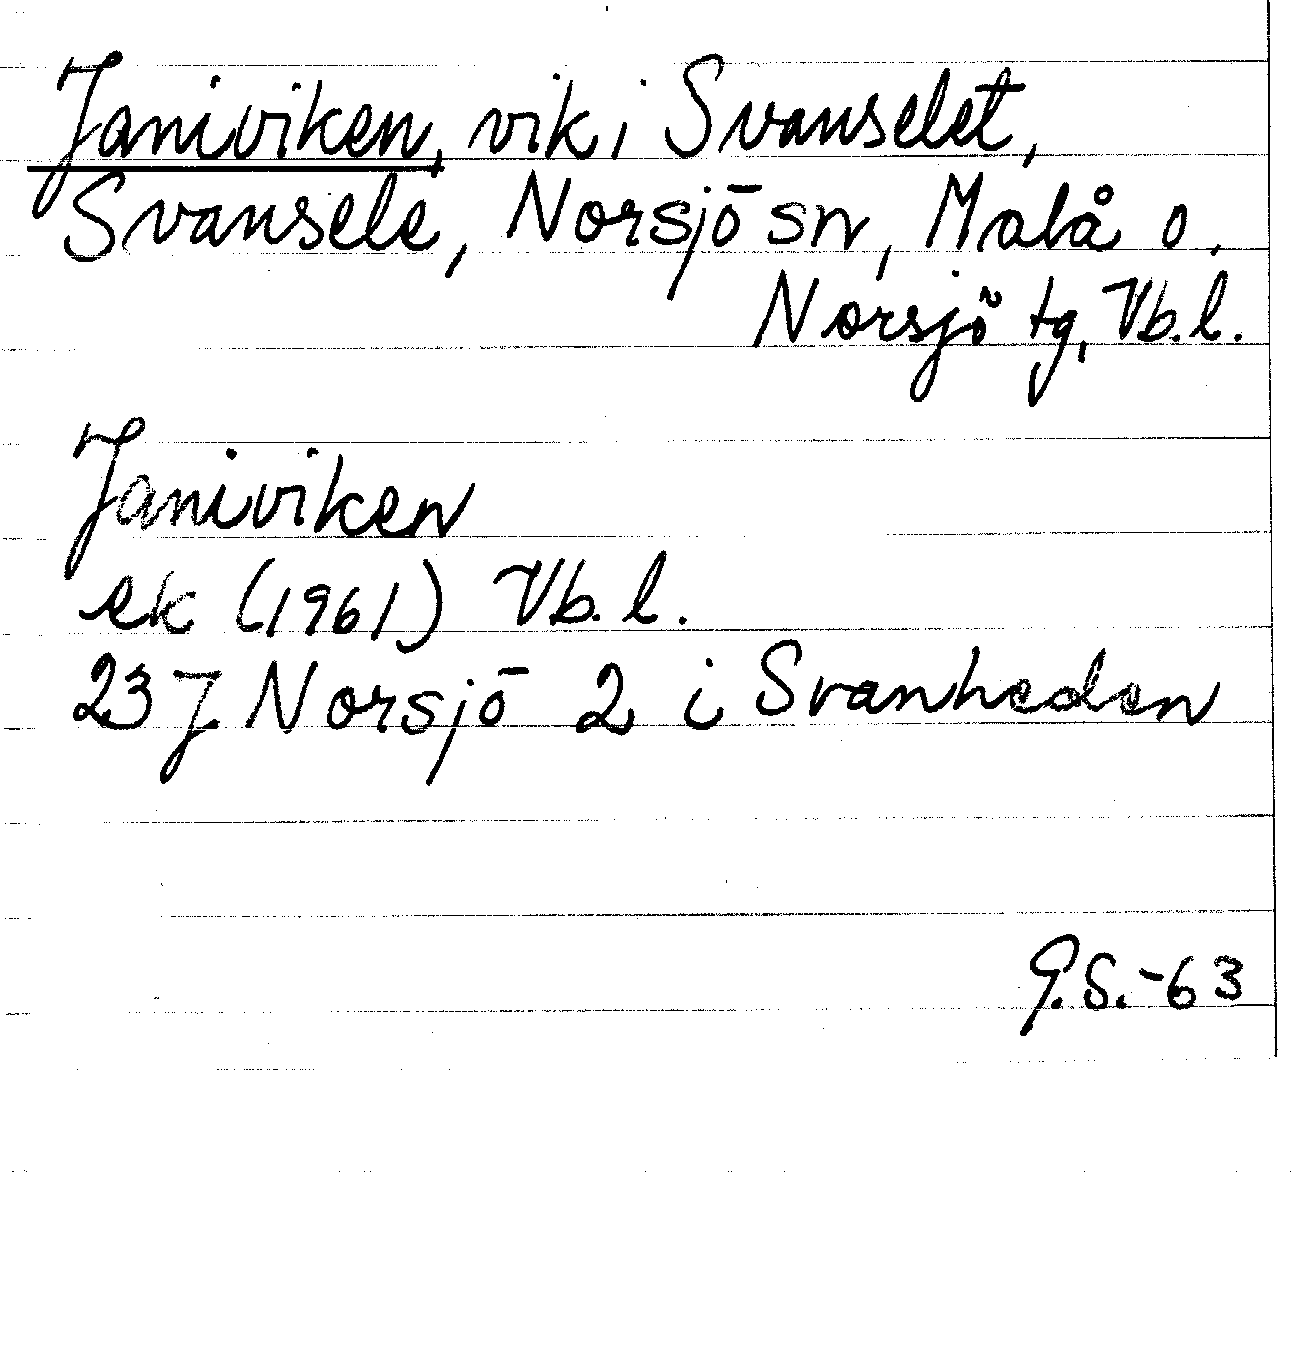 Janiviken, vik i Svanselet,
Svansele, Norsjö sn, Malå o.
Norsjö tg, Vb.l.
Janiviken
ek (1961) Vb. l.
23 J Norsjö 2 i Svanheden
G.S.-63